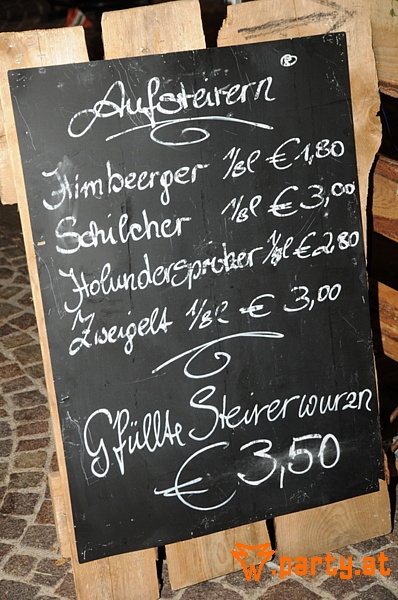 Aufsteirern ®
Himbeerger 1/8l € 1,80
Schilcher 1/8l € 3,00
Holunderspritzer 1/8l € 2,80
Zweigelt 1/8l € 3,00
Gfüllte Steirerwurzn
€ 3,50
.party.at